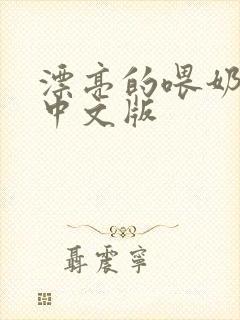 漂亮的喂奶
中文版
聂震宁